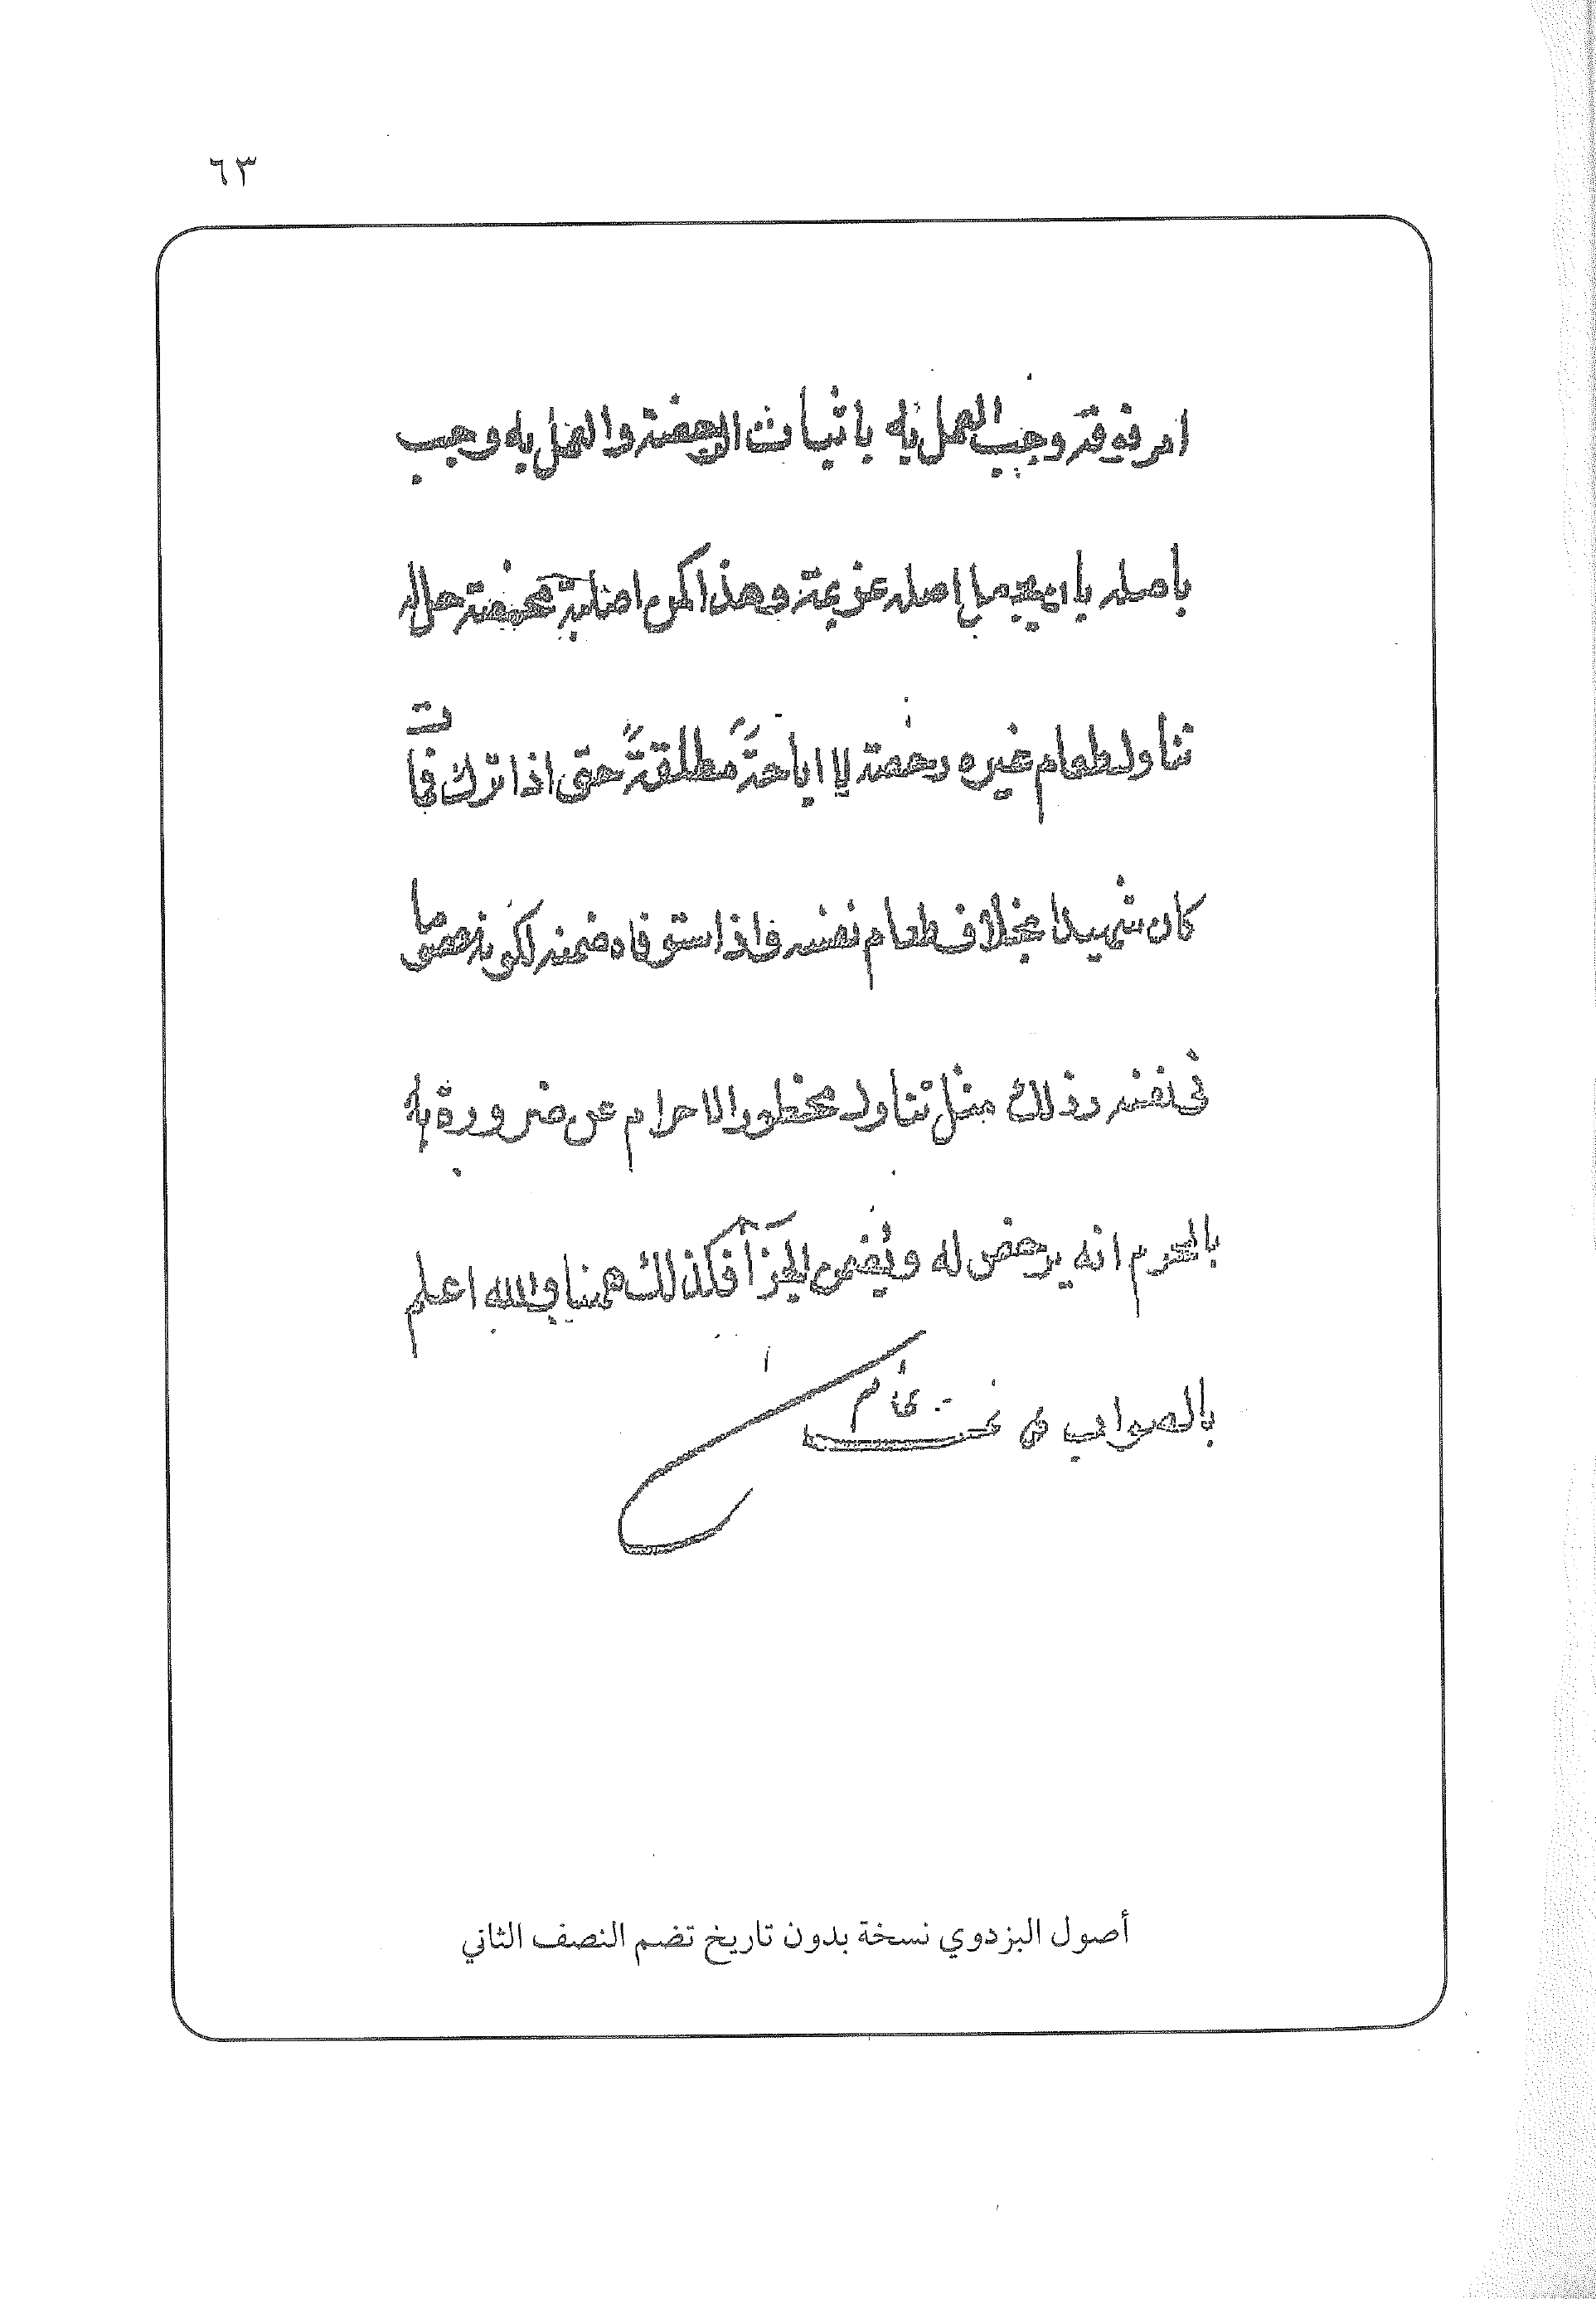 ٦٣
امر فوقه وجب العمل به باثبات الرخصة والعمل به وجب
باصله بان يجعل اصله عزيمة وهذا كمن اصابته مخمصة حل له
تناول طعام غيره رخصة لا اباحةً مطلقةً حتى اذا ترك فمات
كان شهيدا بخلاف طعام نفسه فاذا استوفاه ضمنه لكونه معصوما
فى نفسه وذلك مثل تناول محظور الاحرام عن ضرورة به
بالمحرم انه يرخص له ويضمن الجزآ فكذلك ههنا والله اعلم
بالصواب
أصول البزدوي نسخة بدون تاريخ تضم النصف الثاني